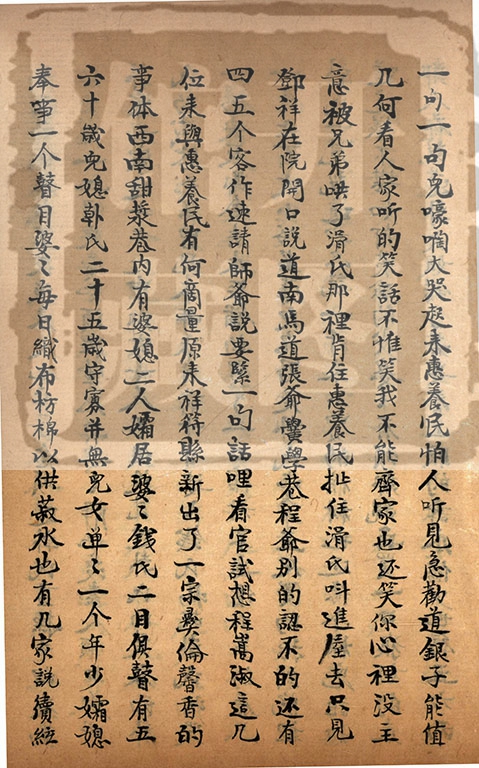 一句一句兒嚎啕大哭起来惠養民怕人听見急勸道銀子能值
几何看人家听的笑話不惟笑我不能齊家也还笑你心裡没主
意被兄弟哄了滑氏那裡肯住惠養民扯住滑氏叫進屋去只見
鄧祥在院開口說道南馬道張爺黌學巷程爺别的認不的还有
四五个客作速請師爺說要緊一句話哩看官試想程嵩淑這几
位来與惠養民有何商量原来祥符縣新出了一宗彝倫馨香的
事体西南甜漿巷内有婆媳二人孀居婆〻錢氏二目俱瞽有五
六十歲兒媳韓氏二十五歲守寡并無兒女单〻一个年少孀媳
奉事一个瞽目婆〻每日織布纺棉以供菽水也有几家說續絃